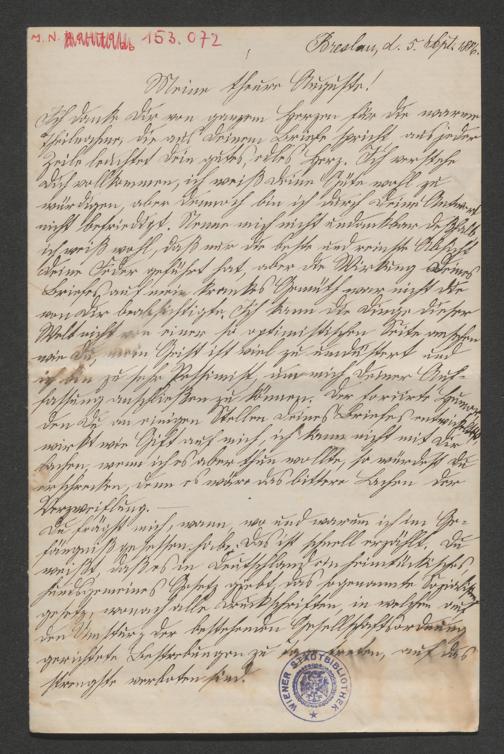 J. N. 153.072
Breslau, d. 5. Sept. 1886.
Meine theure Auguste!
Ich danke Dir von ganzem Herzen für die warme
Theilnahme, die aus Deinem Briefe spricht, aus jeder
Zeile leuchtet Dein gutes, edles Herz. Ich verstehe
Dich vollkommen, ich weiß Deine Güte wohl zu
würdigen, aber dennoch bin ich durch Deine Antwort
nicht befriedigt. Nenne mich nicht undankbar deßhalb,
ich weiß wohl, daß nur die beste und reinste Absicht
Deine Feder geführt hat, aber die Wirkung Deines
Briefes auf mein krankes Gemüth war nicht die
von Dir beabsichtigte. Ich kann die Dinge dieser
Welt nicht von einer so optimistischen Seite ansehen
wie Du, mein Geist ist viel zu umdüstert und
ich bin zu sehr Pessimist, um mich Deiner Auf-
fassung anschließen zu können. Der forcirte Humor,
den Du an einigen Stellen Deines Briefes entwickelst,
wirkt wie Gift auf mich, ich kann nicht mit Dir
lachen, wenn ich es aber thun wollte, so würdest Du
erschrecken, denn es wäre das bittere Lachen der
Verzweiflung. —
Du frägst mich, wann, wo und warum ich im Ge-
fängniß gesessen habe. Das ist schnell erzählt. Du
weißt, daß es in Deutschland ein heimtückisches
hundsgemeines Gesetz giebt, das sogenannte Sozialisten-
gesetz, wonach alle Druckschriften, in welchen auf
den Umsturz der bestehenden Gesellschaftsordnung
gerichtete Bestrebungen zu Tage treten, auf das
strengste verboten sind.
WIENER STADTBIBLIOTHEK